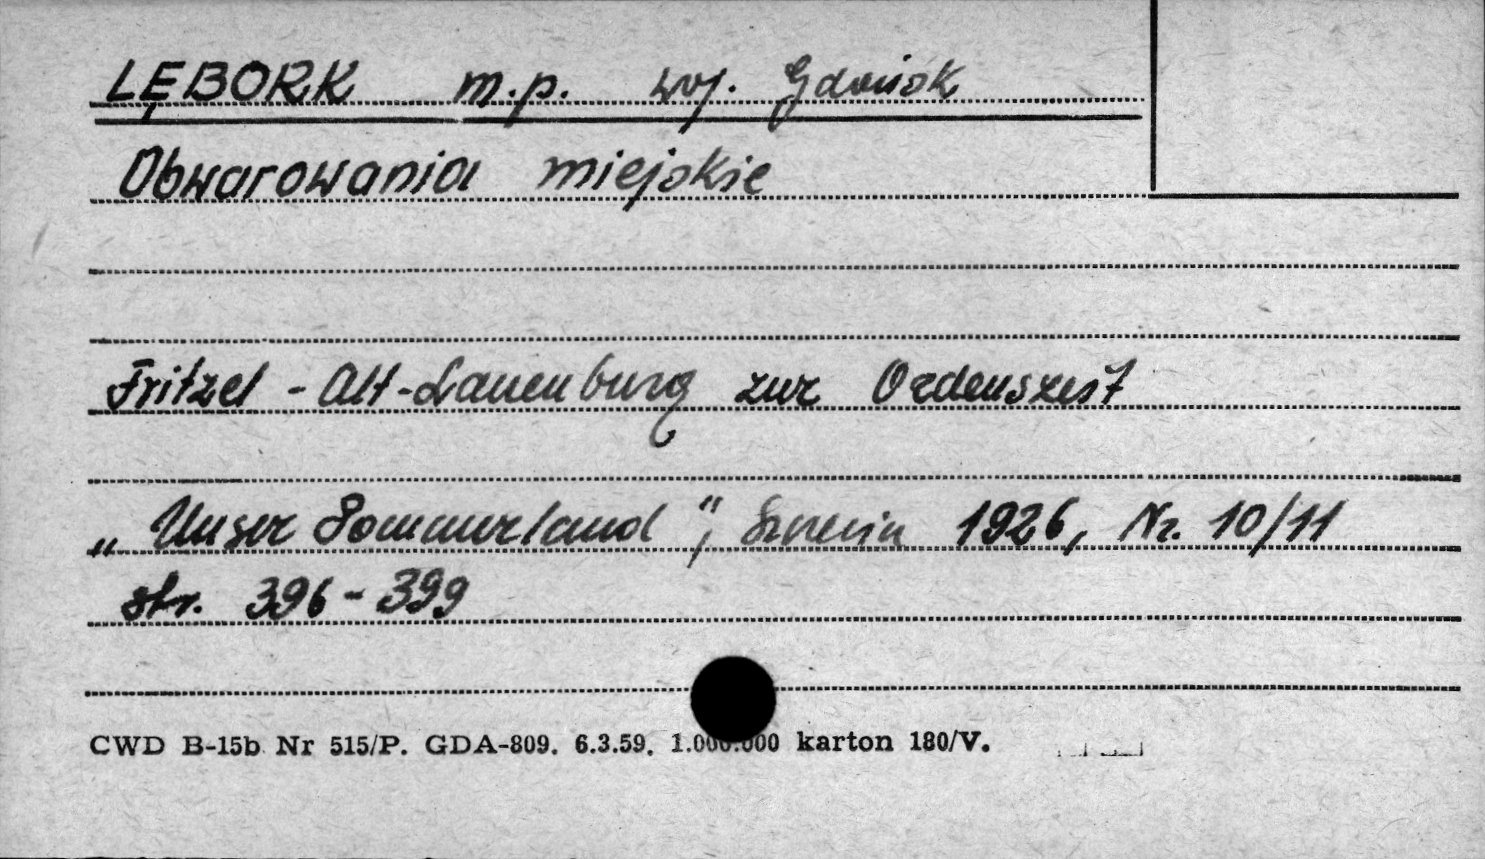 LĘBORK m.p. woj. Gdańsk
Obwarowania miejskie
Fritzel - Alt-Lauenburg zur Ordenszeit
„Unser Pommerland”, 1926, Nr. 10/11
str. 396-399
CWD B-15b Nr 515/P. GDA-809. 6.3.59. 1.000.000 karton 180/V.